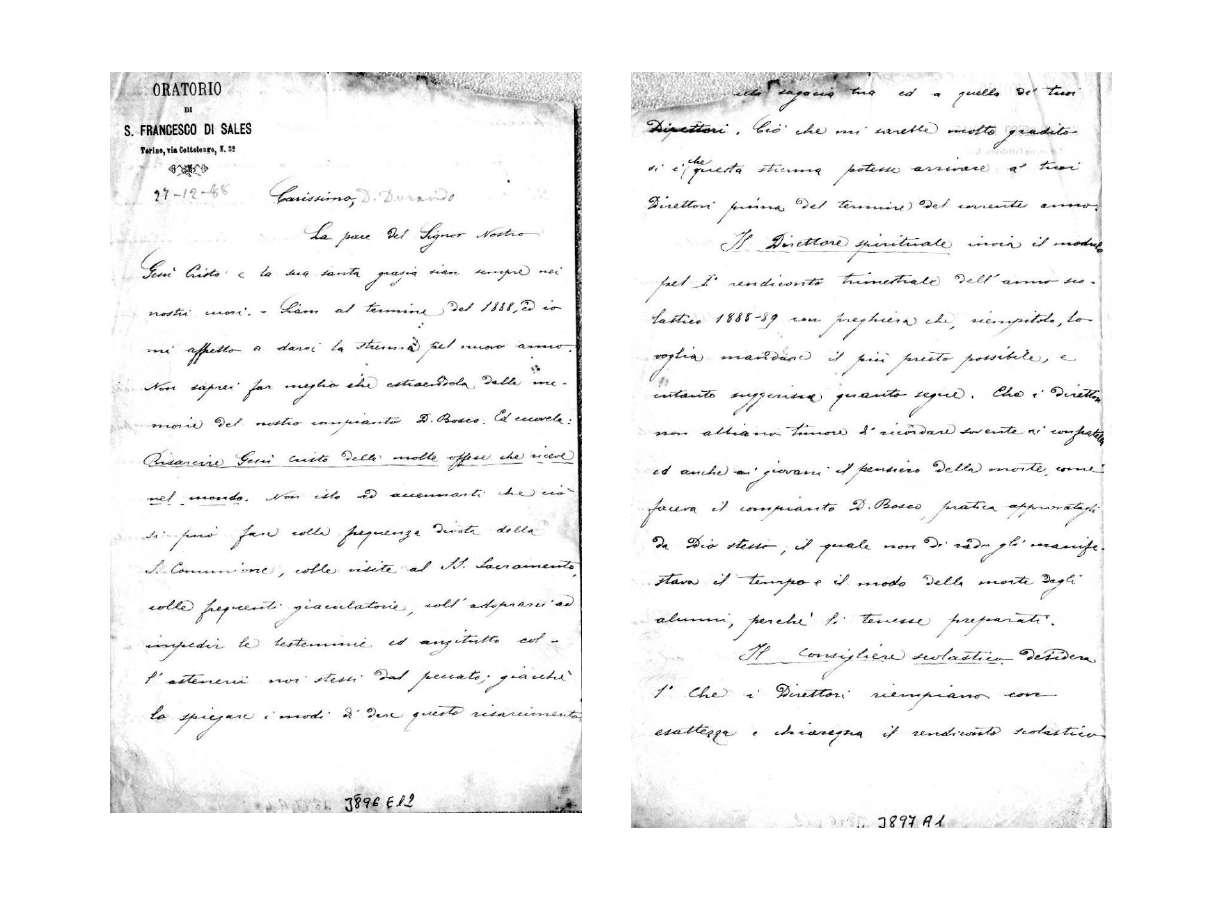 ORATORIO
DI
S. FRANCESCO DI SALES
Torino, via Cottolengo, N. 32
27-12-88
Carissimo, D. Durando
La pace del Signor Nostro
Gesù Cristo e la sua santa grazia sian sempre nei
nostri cuori. - Siam al termine del 1888, ed io
mi affretto a darvi la strenna pel nuovo anno.
Non saprei far meglio che estraendola dalle me-
morie del nostro compianto D. Bosco. Ed eccovela:
Risarcire Gesù Cristo delle molte offese che riceve
nel mondo. Non isto ad accennarti che ciò
si può fare colle frequenza divota della
S. Comunione, colle visite al SS. Sacramento,
colle frequenti giaculatorie, coll'adoprarci ad
impedir le bestemmie ed anzitutto col-
l'astenerci noi stessi dal peccato; giacchè
lo spiegare i modi di dare questo risarcimento
sagacia tua ed a quella de' tuoi
Direttori. Ciò che mi sarebbe molto gradito
si è che questa strenna potesse arrivare a' tuoi
Direttori prima del termine del corrente anno.
Il Direttore spirituale invia il modulo
pel I° rendiconto trimestrale dell'anno sco-
lastico 1888-89 con preghiera che, riempitolo, lo
voglia mandare il più presto possibile, e
intanto suggerisce quanto segue. Che i direttori
non abbiano timore di ricordare sovente ai confratelli
ed anche ai giovani il pensiero della morte, come
faceva il compianto D. Bosco, pratica approvatagli
da Dio stesso, il quale non di rado gli manife-
stava il tempo e il modo della morte degli
alunni, perchè li tenesse preparati.
Il Consigliere scolastico desidera
1° Che i Direttori riempiano con
esattezza e chiarezza il rendiconto scolastico
J896 E12
J897 A1